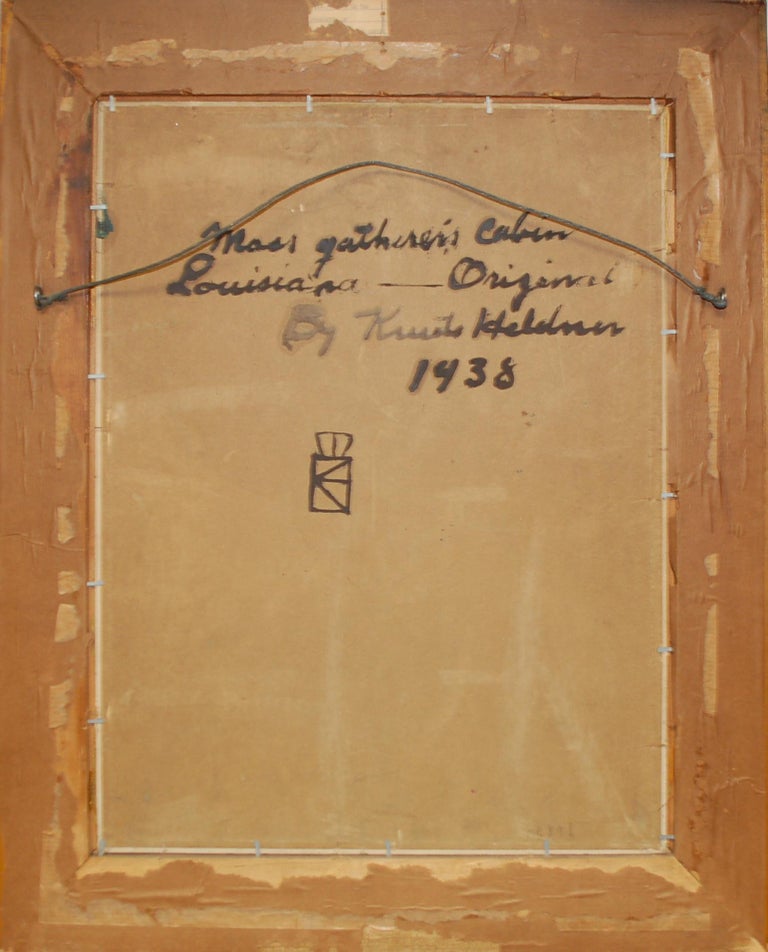 Moss gatherer's Cabin
Louisiana — Original
By Knute Heldner
1938